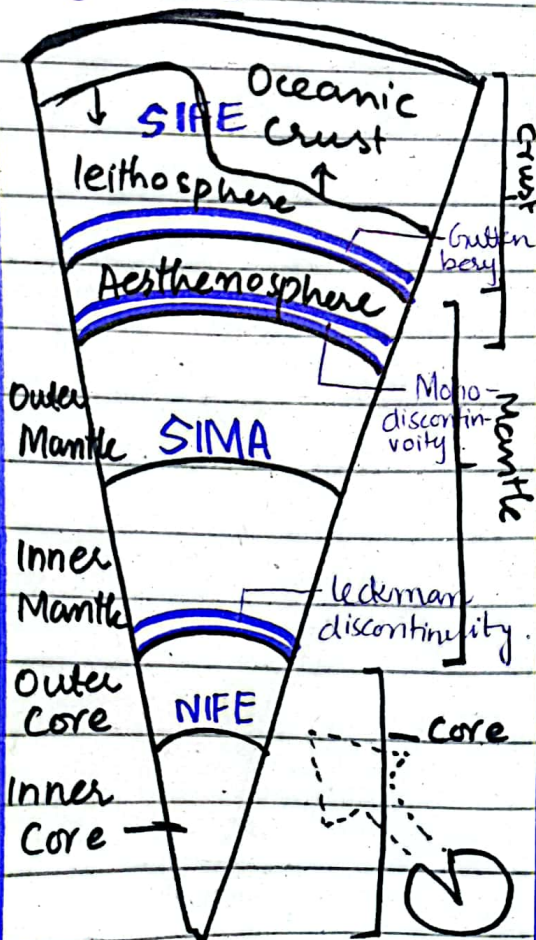 Oceanic
Crust
SIFE
leithosphere
Crust
Gutten
bery
Aesthenosphere
Moho-
discontin-
voity
Outer
Mantle
SIMA
Mantle
Inner
Mantle
leckman
discontinuity.
Outer
Core
NIFE
Core
Inner
Core